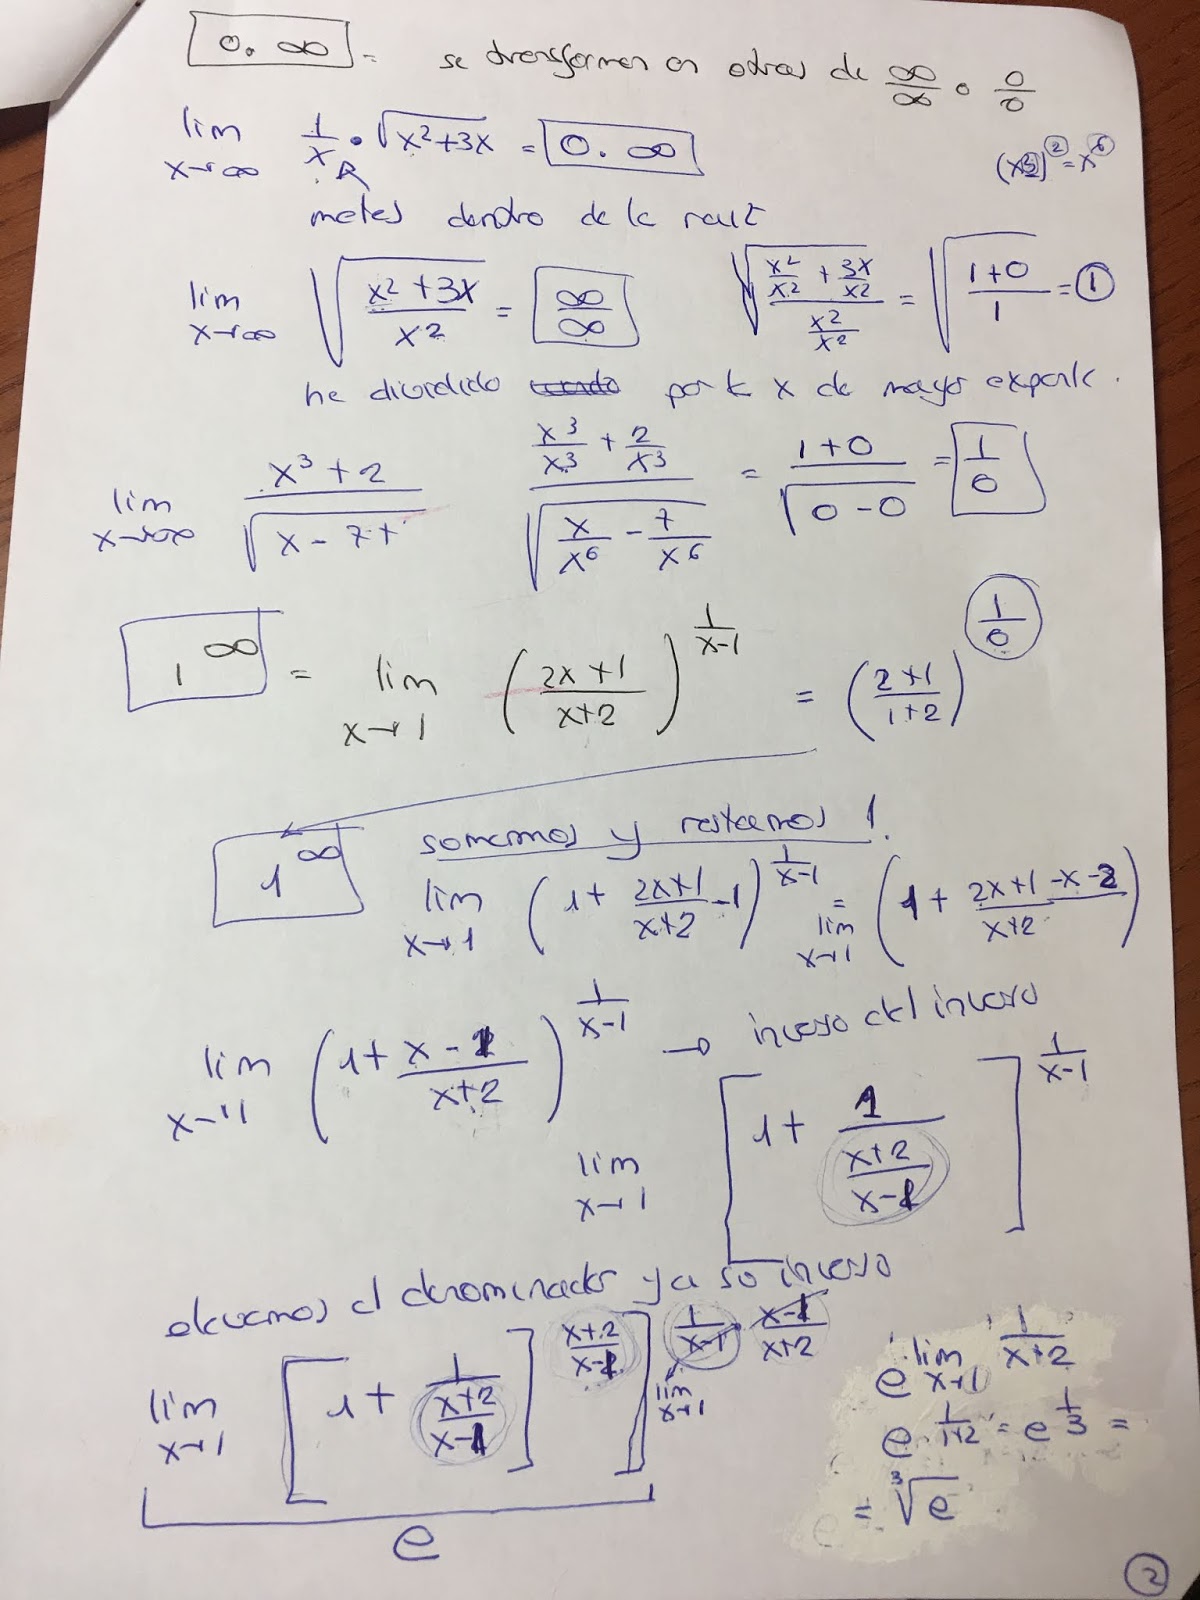 0·∞ = se transforman en otras de ∞/∞ o 0/0
lim x→∞ 1/x · √(x²+3x) = 0·∞
(x³)² = x⁶
metes dentro de la raiz
lim x→∞ √((x²+3x)/x²) = ∞/∞ √((x²/x² + 3x/x²)/(x²/x²)) = √((1+0)/1) = 1
he dividido por la x de mayor
lim x→∞ (x³+2)/√(x-7) (x³/x³ + 2/x³)/√(x/x⁶ - 7/x⁶) = (1+0)/√(0-0) = 1/0
1^∞ = lim x→1 ((2x+1)/(x+2))^(1/(x-1)) = ((2+1)/(1+2))^(1/0)
1^∞ sumamos y restamos 1.
lim x→1 (1 + (2x+1)/(x+2) - 1)^(1/(x-1)) = lim x→1 (1 + (2x+1-x-2)/(x+2))
lim x→1 (1 + (x-1)/(x+2))^(1/(x-1)) → inverso del inverso
lim x→1 [1 + 1/((x+2)/(x-1))]^(1/(x-1))
elevamos al denominador y a su inverso
lim x→1 [[1 + 1/((x+2)/(x-1))]^((x+2)/(x-1))]^(lim x→1 1/(x-1) · (x-1)/(x+2))
e
e^(lim x→1 1/(x+2))
e^(1/(1+2)) = e^(1/3) =
= ³√e
2